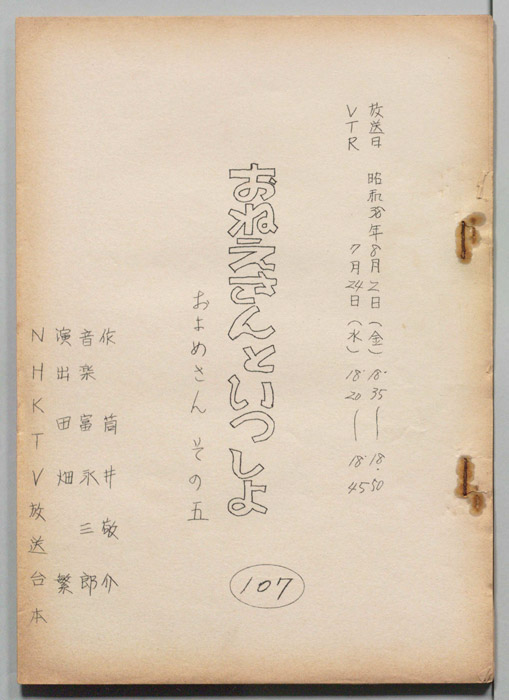 放送日 昭和38年8月2日(金) 18.35〜18.50
VTR 7月24日(水) 18.20〜18.45
おねえさんといつしよ
107
およめさん その五
作 筒井敬介
音楽 富永三郎
演出 田畑繁
NHKTV放送台本